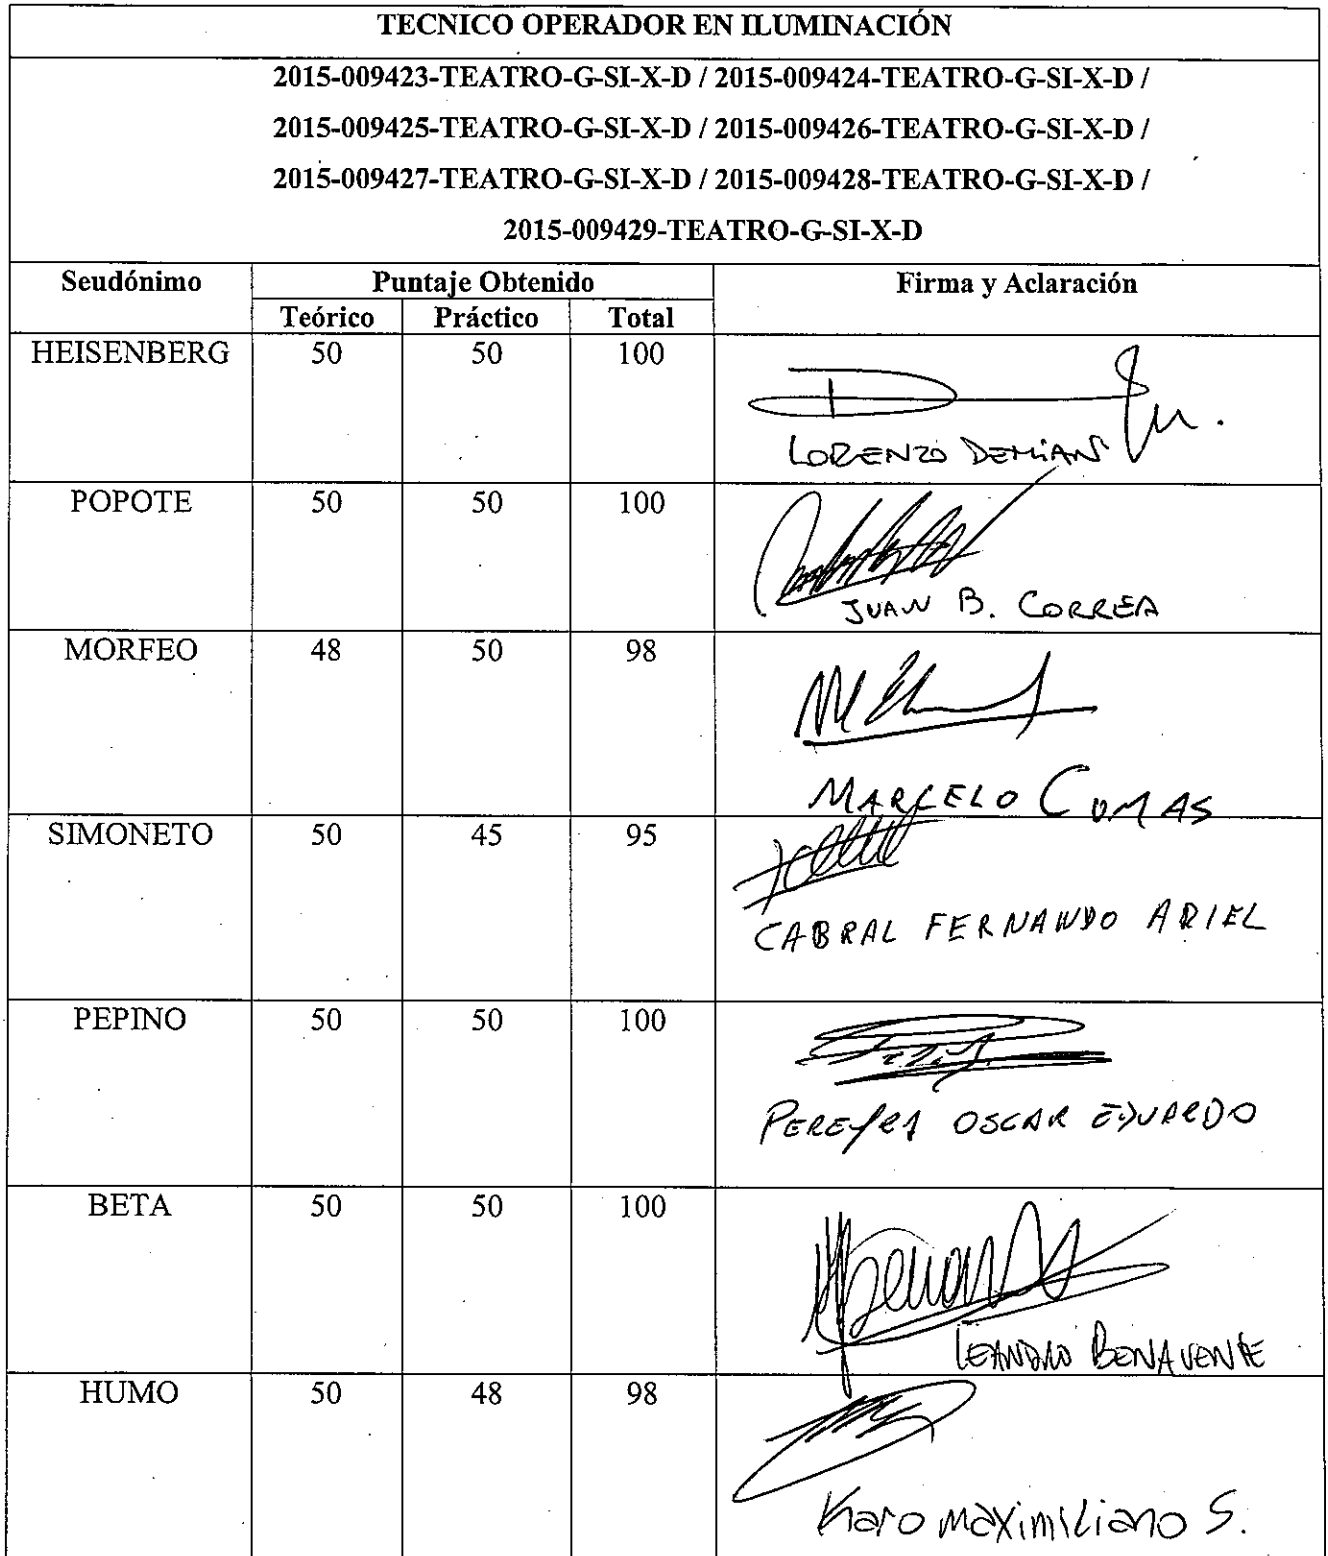 TECNICO OPERADOR EN ILUMINACIÓN
2015-009423-TEATRO-G-SI-X-D / 2015-009424-TEATRO-G-SI-X-D /
2015-009425-TEATRO-G-SI-X-D / 2015-009426-TEATRO-G-SI-X-D /
2015-009427-TEATRO-G-SI-X-D / 2015-009428-TEATRO-G-SI-X-D /
2015-009429-TEATRO-G-SI-X-D
Seudónimo Puntaje Obtenido Firma y Aclaración
Teórico Práctico Total
HEISENBERG 50 50 100
LORENZO DEMIAN
POPOTE 50 50 100
JUAN B. CORREA
MORFEO 48 50 98
MARCELO COMAS
SIMONETO 50 45 95
CABRAL FERNANDO ARIEL
PEPINO 50 50 100
PEREYRA OSCAR EDUARDO
BETA 50 50 100
LEANDRO BENAVENTE
HUMO 50 48 98
Karo maximiliano S.